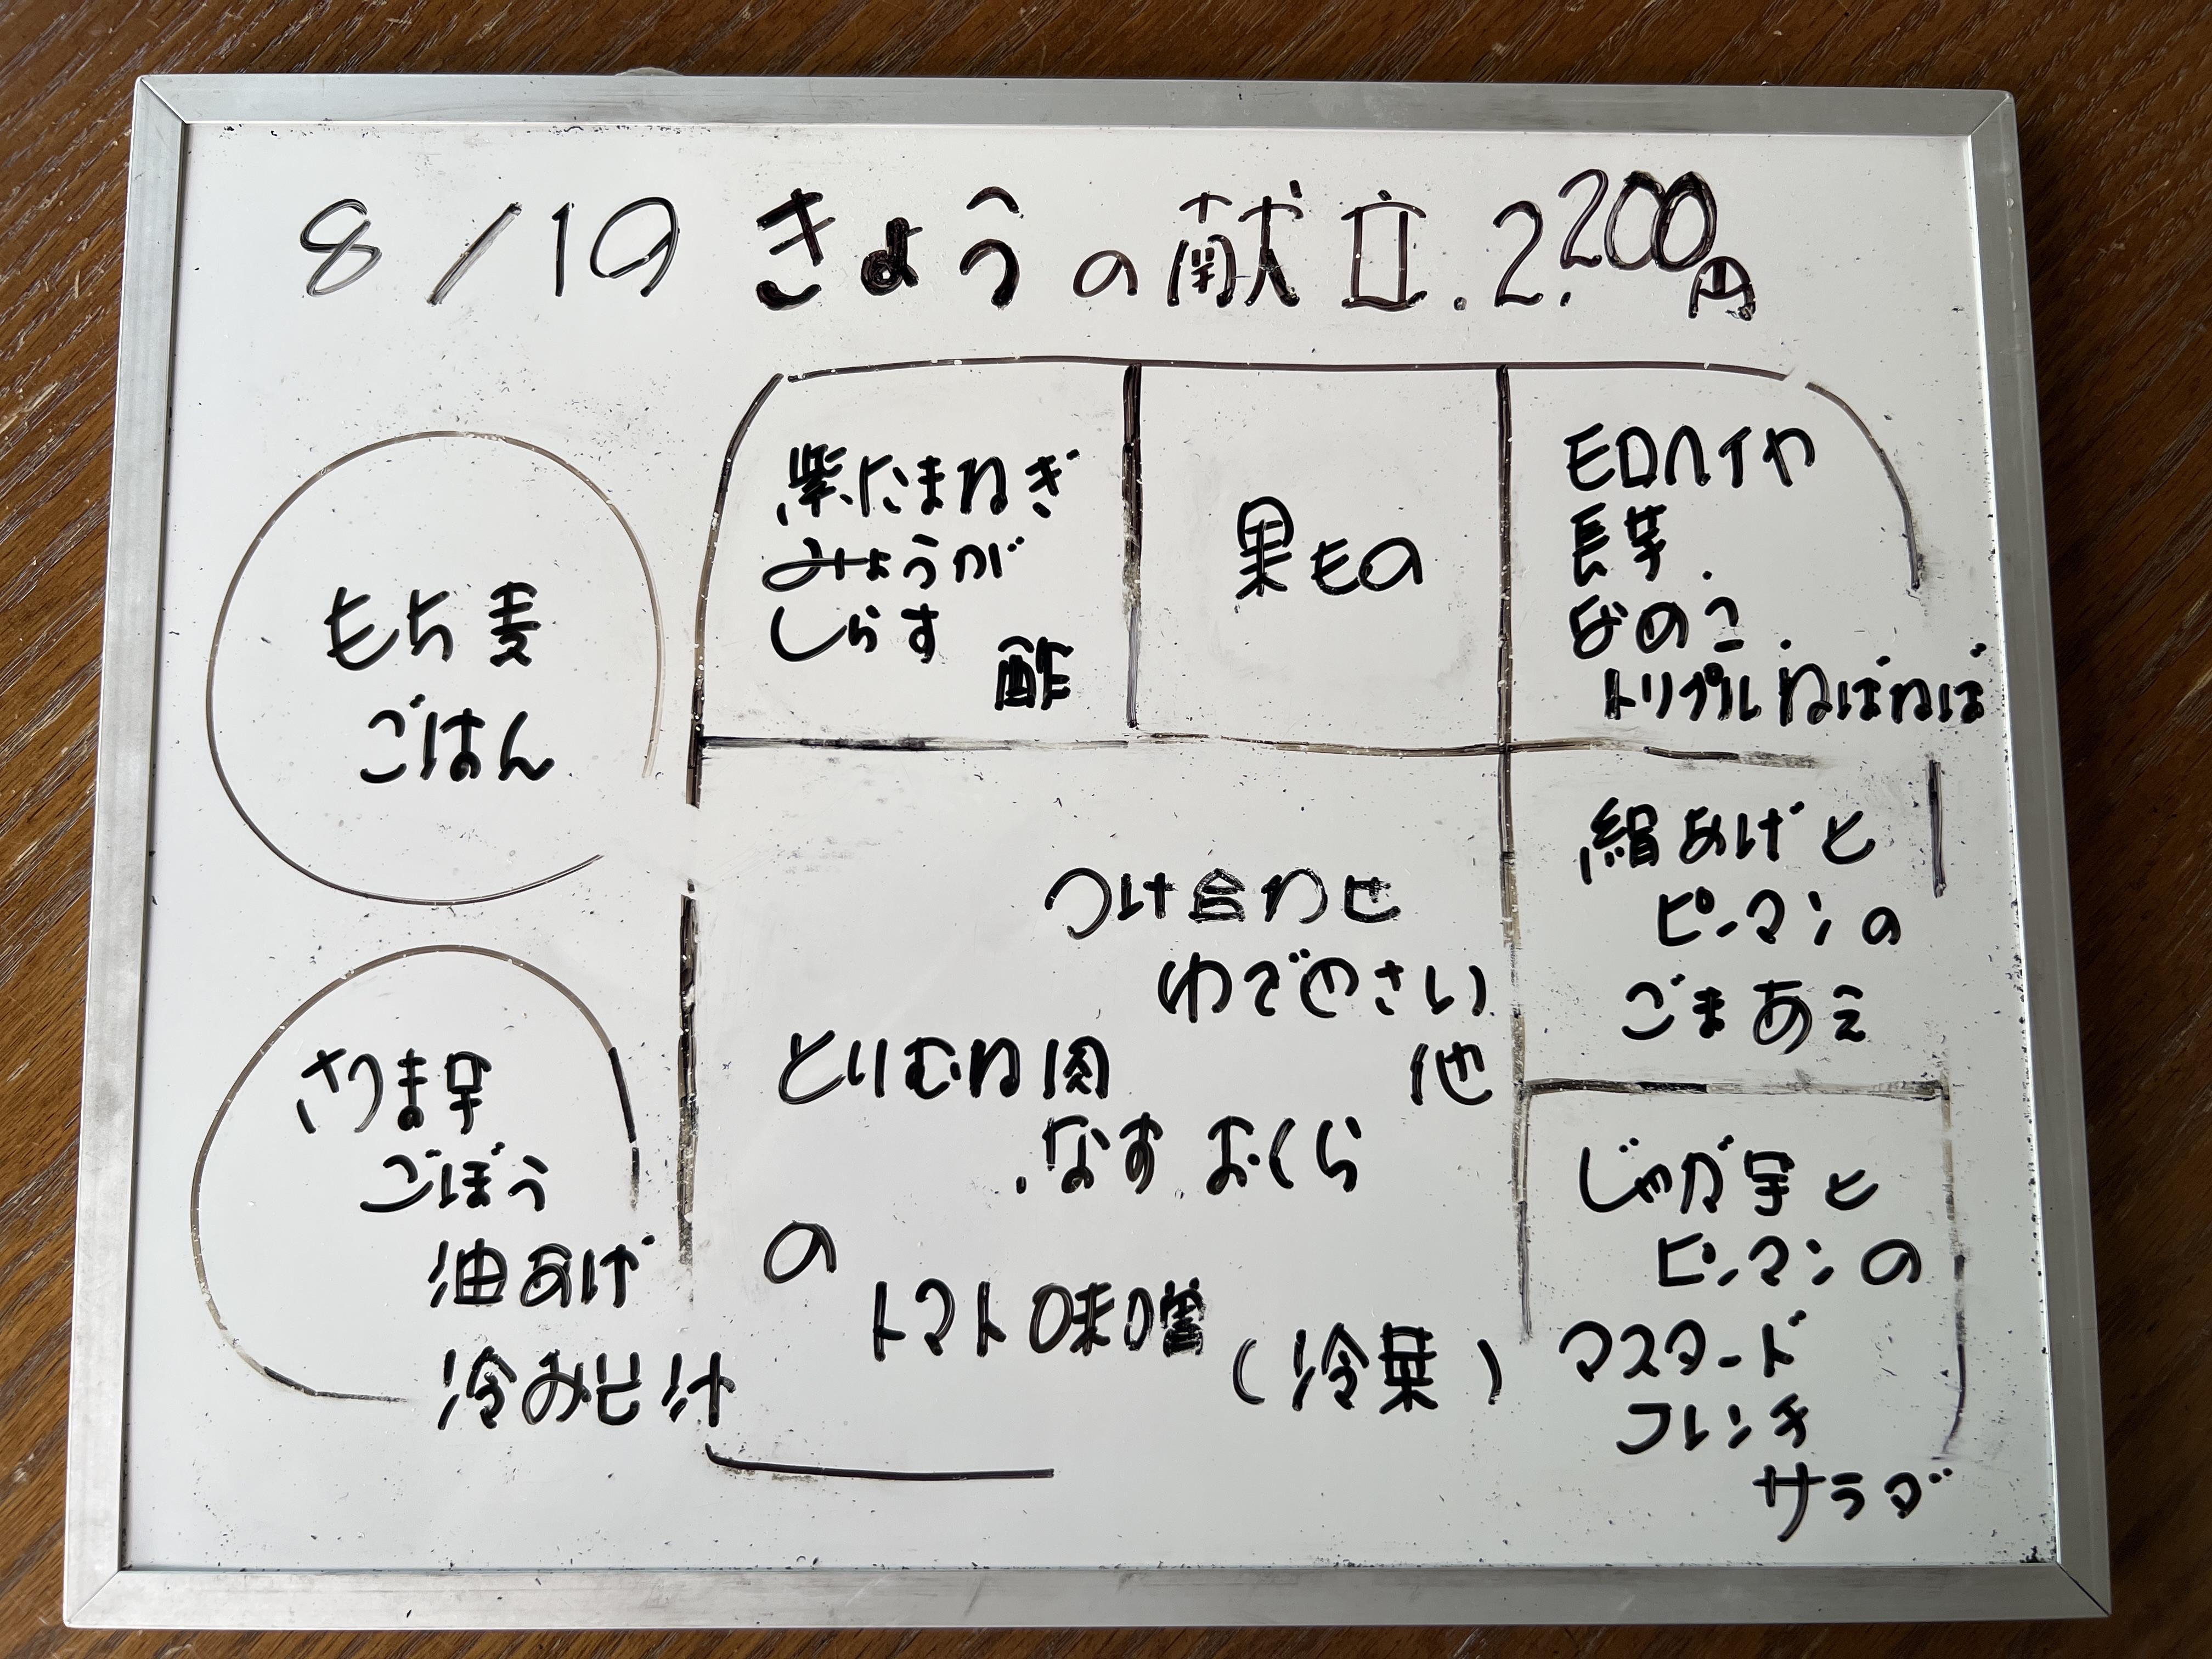 8/19 きょうの献立.2,200円
もち麦
ごはん
さつま芋
ごぼう
油あげ
冷みそ汁
紫たまねぎ
みょうが
しらす
酢
果もの
モロヘイや
長芋.
なめこ.
トリプルねばねば
つけ合わせ
ゆでやさい
他
とりむね肉
.なす おくら
の
トマト味噌
(冷菜)
絹あげと
ピーマンの
ごまあえ
じゃが芋と
ピーマンの
マスタード
フレンチ
サラダ